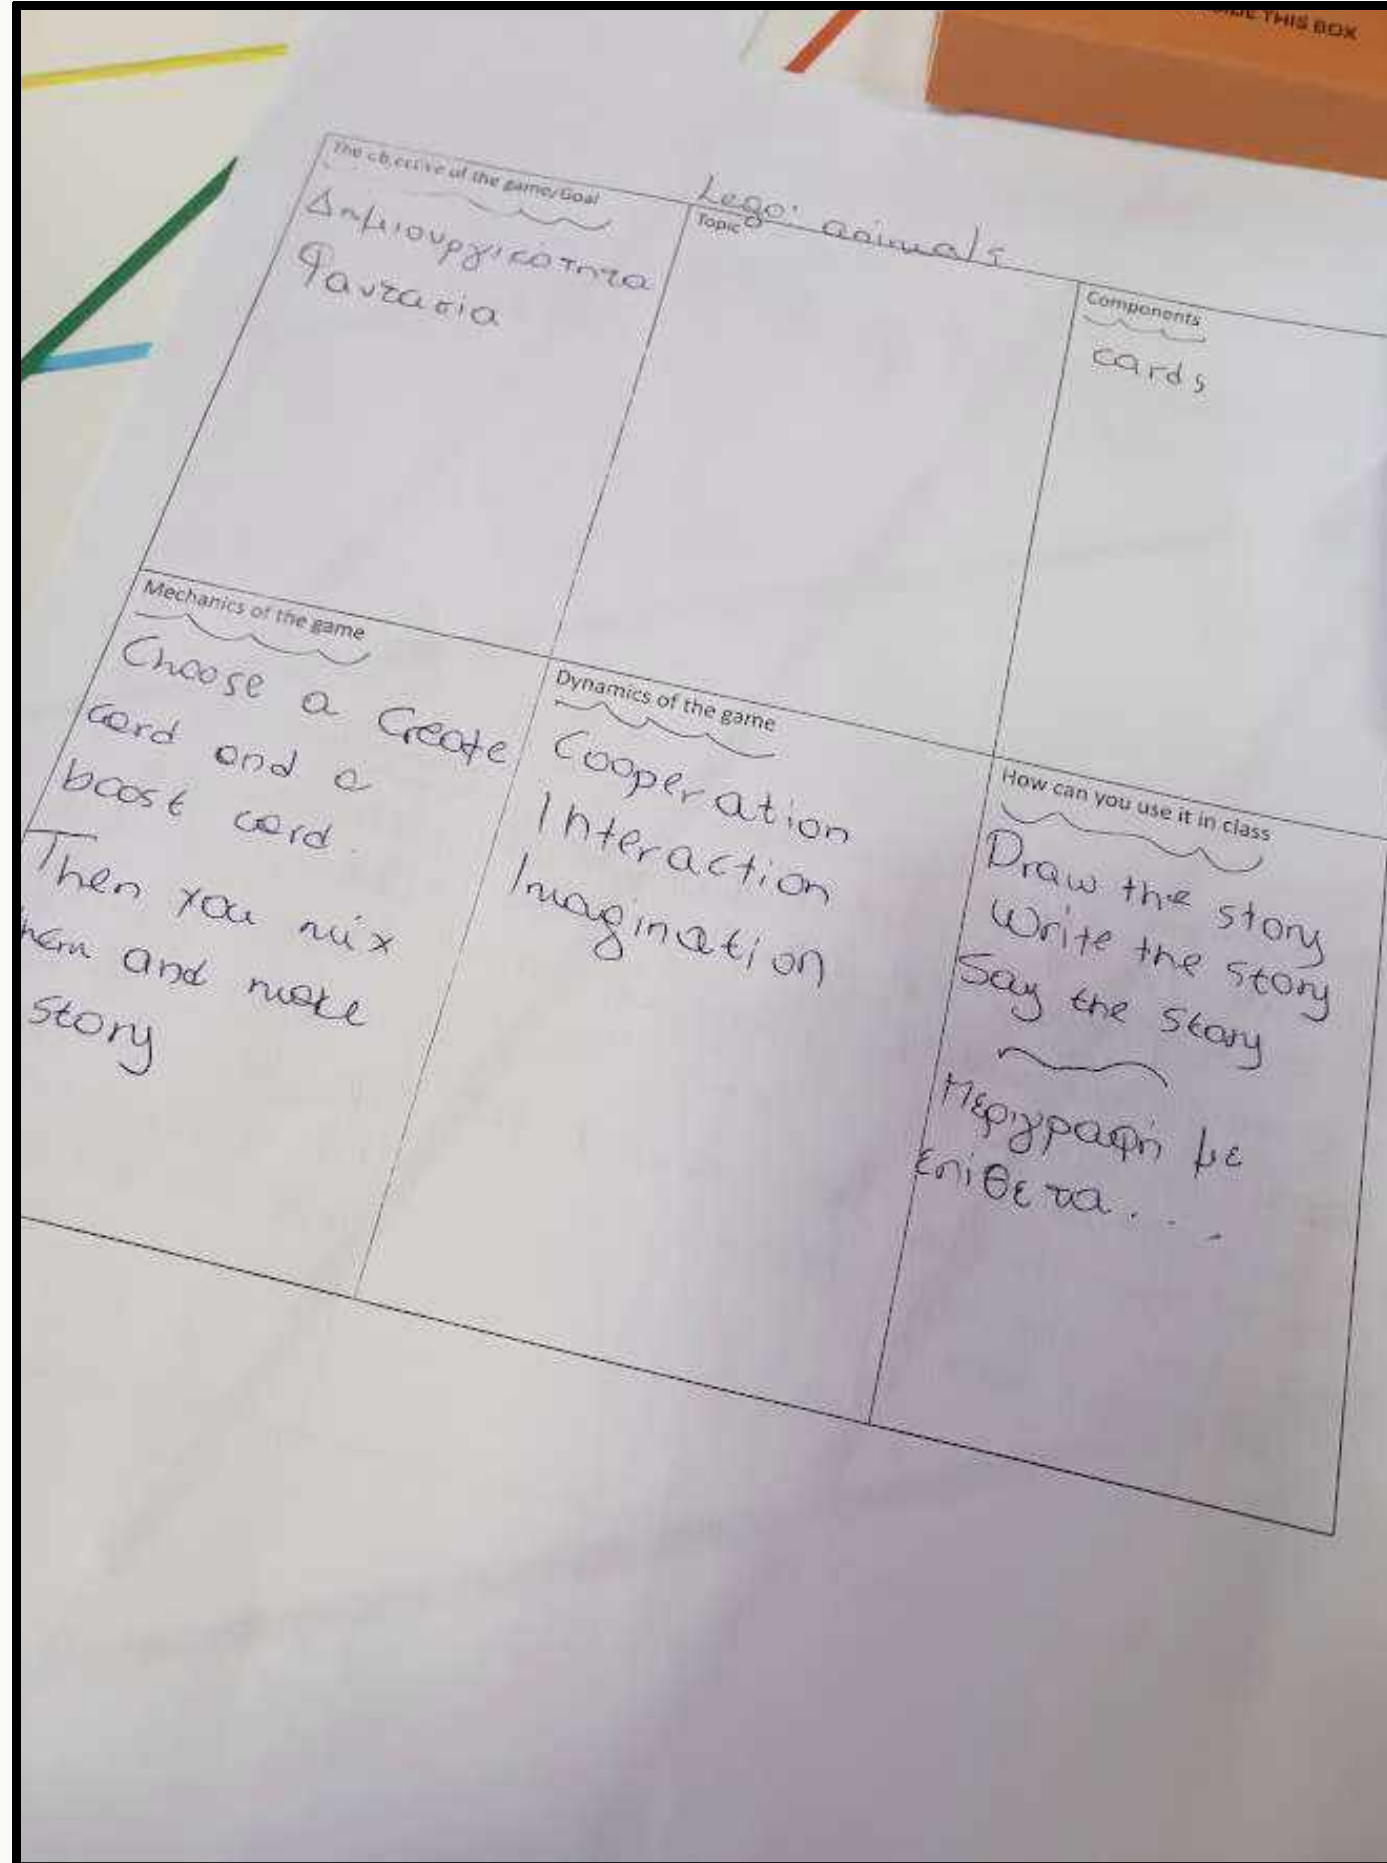 THIS BOX
Lego: animals
The objective of the game/Goal
Δημιουργικότητα
Φαντασία
Topic
Components
cards
Mechanics of the game
Choose a Create
card and a
boost card.
Then you mix
them and make
story
Dynamics of the game
Cooperation
Interaction
Imagination
How can you use it in class
Draw the story
Write the story
Say the story
Περιγραφή με
επίθετα...